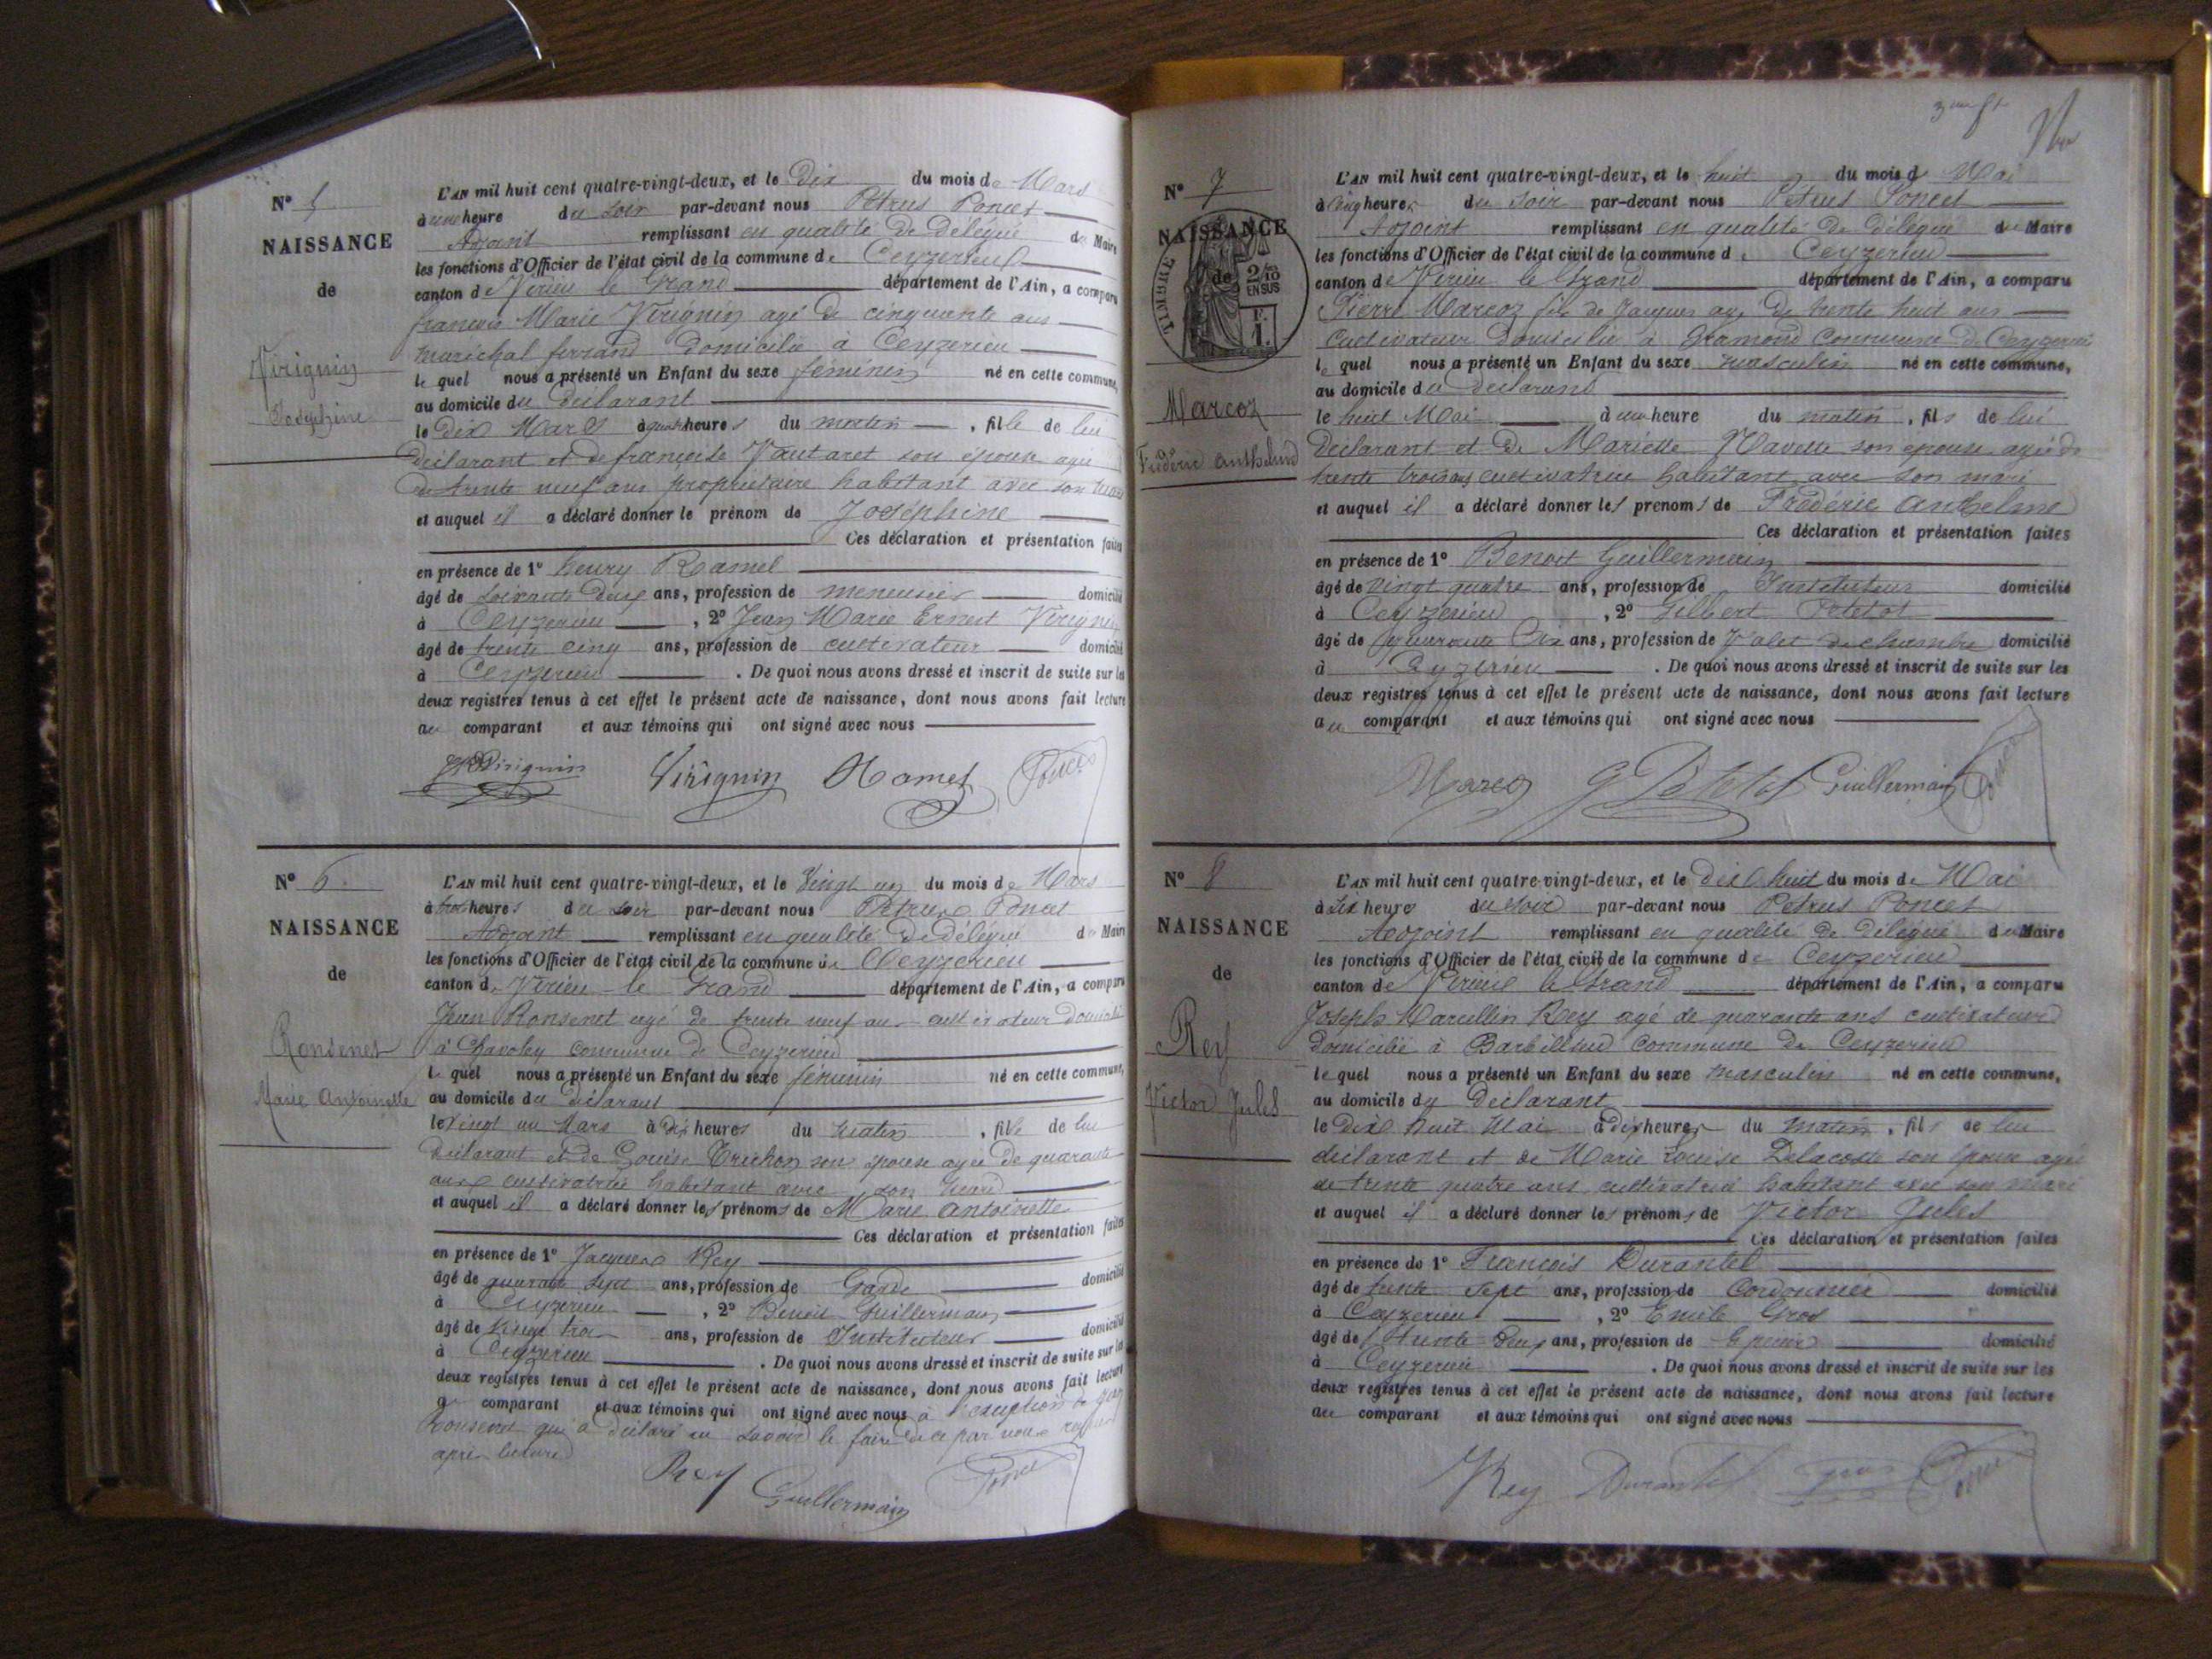 N° 5
NAISSANCE
de
Virignin
Joséphine
L'AN mil huit cent quatre-vingt-deux, et le Dix du mois de Mars
à une heure du soir par-devant nous Pétrus Poncet
Adjoint remplissant en qualité de délégué du Maire
les fonctions d'Officier de l'état civil de la commune de Ceyzerieu
canton de Virieu le Grand département de l'Ain, a comparu
françois Marie Virignin agé de cinquante ans
maréchal ferrand domicilié à Ceyzerieu
le quel nous a présenté un Enfant du sexe féminin né en cette commune,
au domicile du déclarant
le Dix Mars à quatre heures du matin , fille de lui
déclarant et de françoise Vautaret son épouse agée
de trente neuf ans propriétaire habitant avec son mari
et auquel il a déclaré donner le prénom de Joséphine
Ces déclaration et présentation faites
en présence de 1° henry Ramel
âgé de soixante deux ans, profession de menuisier domicilié
à Ceyzerieu , 2° Jean Marie Ernest Virignin
âgé de trente cinq ans, profession de cultivateur domicilié
à Ceyzerieu . De quoi nous avons dressé et inscrit de suite sur les
deux registres tenus à cet effet le présent acte de naissance, dont nous avons fait lecture
au comparant et aux témoins qui ont signé avec nous
Virignin Virignin Ramel Poncet
N° 6
NAISSANCE
de
Ronsenet
Marie Antoinette
L'AN mil huit cent quatre-vingt-deux, et le Vingt un du mois de Mars
à heures du soir par-devant nous Petrus Poncet
Adjoint remplissant en qualité de délégué du Maire
les fonctions d'Officier de l'état civil de la commune de Ceyzerieu
canton de Virieu le Grand département de l'Ain, a comparu
Jean Ronsenet agé de trente neuf ans cultivateur domicilié
à Chavoley commune de Ceyzerieu
le quel nous a présenté un Enfant du sexe féminin né en cette commune,
au domicile du déclarant
le Vingt un Mars à dix heures du matin , fille de lui
déclarant et de Louise Truchon son épouse agée de quarante
ans cultivatrice habitant avec son mari
et auquel il a déclaré donner les prénoms de Marie Antoinette
Ces déclaration et présentation faites
en présence de 1° Jacques Rey
âgé de quarante sept ans, profession de Garde domicilié
à Ceyzerieu , 2° Benoit Guillermain
âgé de Vingt trois ans, profession de Instituteur domicilié
à Ceyzerieu . De quoi nous avons dressé et inscrit de suite sur les
deux registres tenus à cet effet le présent acte de naissance, dont nous avons fait lecture
au comparant et aux témoins qui ont signé avec nous à l'exception de Jean
Ronsenet qui a déclaré ne savoir le faire de ce par nous requis
après lecture
Rey Guillermain Poncet
3
N° 7
NAISSANCE
de
TIMBRE
2/10 EN SUS
F. 1.
Marcoz
Fréderic Anthelme
L'AN mil huit cent quatre-vingt-deux, et le huit du mois de Mai
à Cinq heures du Soir par-devant nous Petrus Poncet
Adjoint remplissant en qualité de délégué du Maire
les fonctions d'Officier de l'état civil de la commune de Ceyzerieu
canton de Virieu le Grand département de l'Ain, a comparu
Pierre Marcoz fils de Jacques agé de trente huit ans
Cultivateur domicilié à Gramond Commune de Ceyzerieu
le quel nous a présenté un Enfant du sexe masculin né en cette commune,
au domicile du déclarant
le huit Mai à une heure du matin , fils de lui
déclarant et de Mariette Navette son épouse agée de
trente trois ans cultivatrice habitant avec son mari
et auquel il a déclaré donner les prénoms de Fréderic Anthelme
Ces déclaration et présentation faites
en présence de 1° Benoit Guillermain
âgé de vingt quatre ans, profession de Instituteur domicilié
à Ceyzerieu , 2° Gilbert Petetot
âgé de quarante six ans, profession de Valet de chambre domicilié
à Ceyzerieu . De quoi nous avons dressé et inscrit de suite sur les
deux registres tenus à cet effet le présent acte de naissance, dont nous avons fait lecture
au comparant et aux témoins qui ont signé avec nous
Marcoz G Petetot Guillermain Poncet
N° 8
NAISSANCE
de
Rey
Victor Jules
L'AN mil huit cent quatre-vingt-deux, et le Dix huit du mois de Mai
à Six heures du soir par-devant nous Petrus Poncet
Adjoint remplissant en qualité de délégué du Maire
les fonctions d'Officier de l'état civil de la commune de Ceyzerieu
canton de Virieu le Grand département de l'Ain, a comparu
Joseph Marcellin Rey agé de quarante ans cultivateur
domicilié à Barbillieu Commune de Ceyzerieu
le quel nous a présenté un Enfant du sexe masculin né en cette commune,
au domicile du déclarant
le Dix huit Mai à dix heures du matin , fils de lui
déclarant et de Marie Louise Delacoste son épouse agée
de trente quatre ans cultivatrice habitant avec son mari
et auquel il a déclaré donner les prénoms de Victor Jules
Ces déclaration et présentation faites
en présence de 1° François Durantel
âgé de trente sept ans, profession de Cordonnier domicilié
à Ceyzerieu , 2° Emile Gros
âgé de trente deux ans, profession de Epicier domicilié
à Ceyzerieu . De quoi nous avons dressé et inscrit de suite sur les
deux registres tenus à cet effet le présent acte de naissance, dont nous avons fait lecture
au comparant et aux témoins qui ont signé avec nous
Rey Durantel gros Poncet